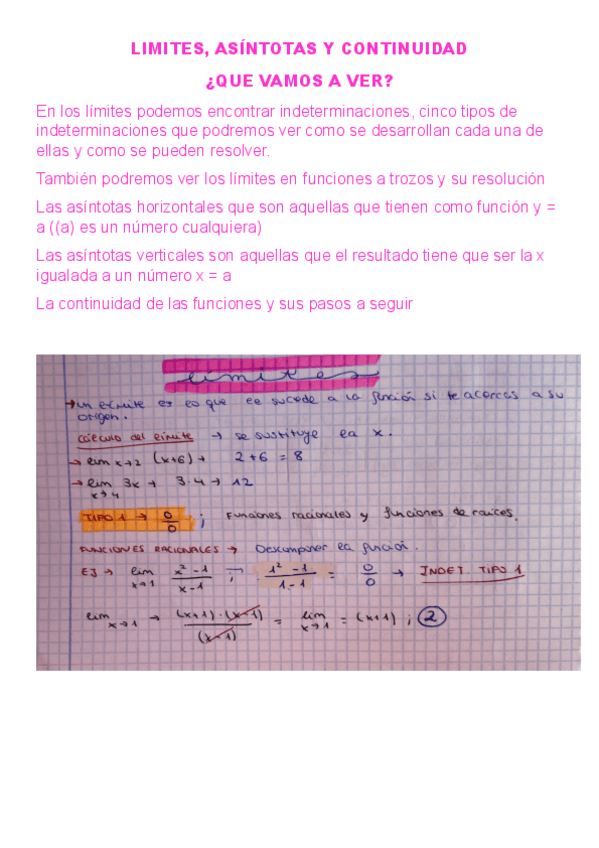 LIMITES, ASÍNTOTAS Y CONTINUIDAD
¿QUE VAMOS A VER?
En los límites podemos encontrar indeterminaciones, cinco tipos de
indeterminaciones que podremos ver como se desarrollan cada una de
ellas y como se pueden resolver.
También podremos ver los límites en funciones a trozos y su resolución
Las asíntotas horizontales que son aquellas que tienen como función y =
a ((a) es un número cualquiera)
Las asíntotas verticales son aquellas que el resultado tiene que ser la x
igualada a un número x = a
La continuidad de las funciones y sus pasos a seguir
límites
→ un límite es lo que le sucede a la función si te acercas a su
origen.
cálculo del límite → se sustituye la x.
→ lim x→2 (x+6) → 2+6 = 8
→ lim x→4 3x → 3·4 → 12
TIPO 1 → 0/0 ; Funciones racionales y funciones de raíces.
FUNCIONES RACIONALES → Descomponer la función.
EJ → lim x→1 x²-1/x-1 ; 1²-1/1-1 = 0/0 → INDET. TIPO 1
lim x→1 → (x+1)·(x-1)/(x-1) = lim x→1 = (x+1) ; 2